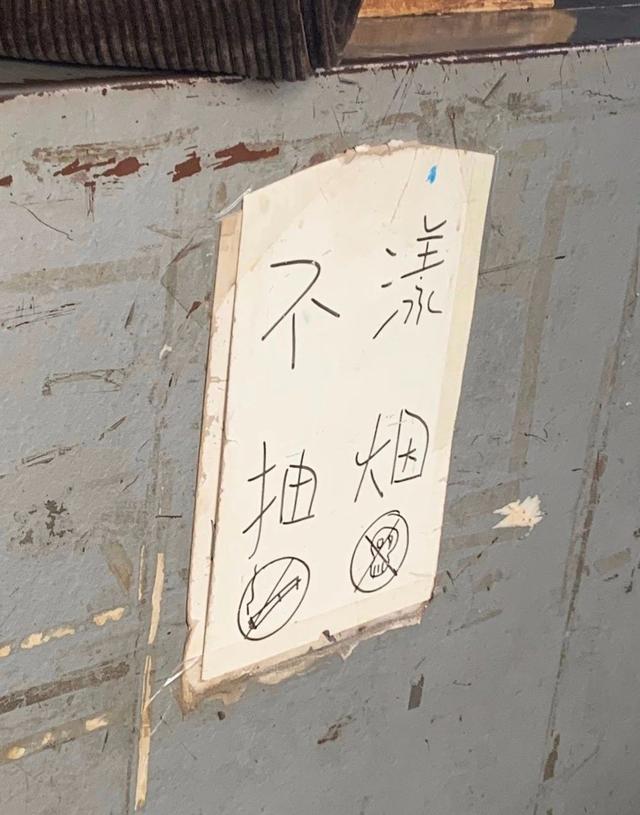 不漾
抽烟